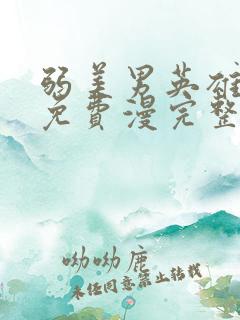 弱美男英雄
免費漫完整
呦呦鹿
未经同意禁止转载